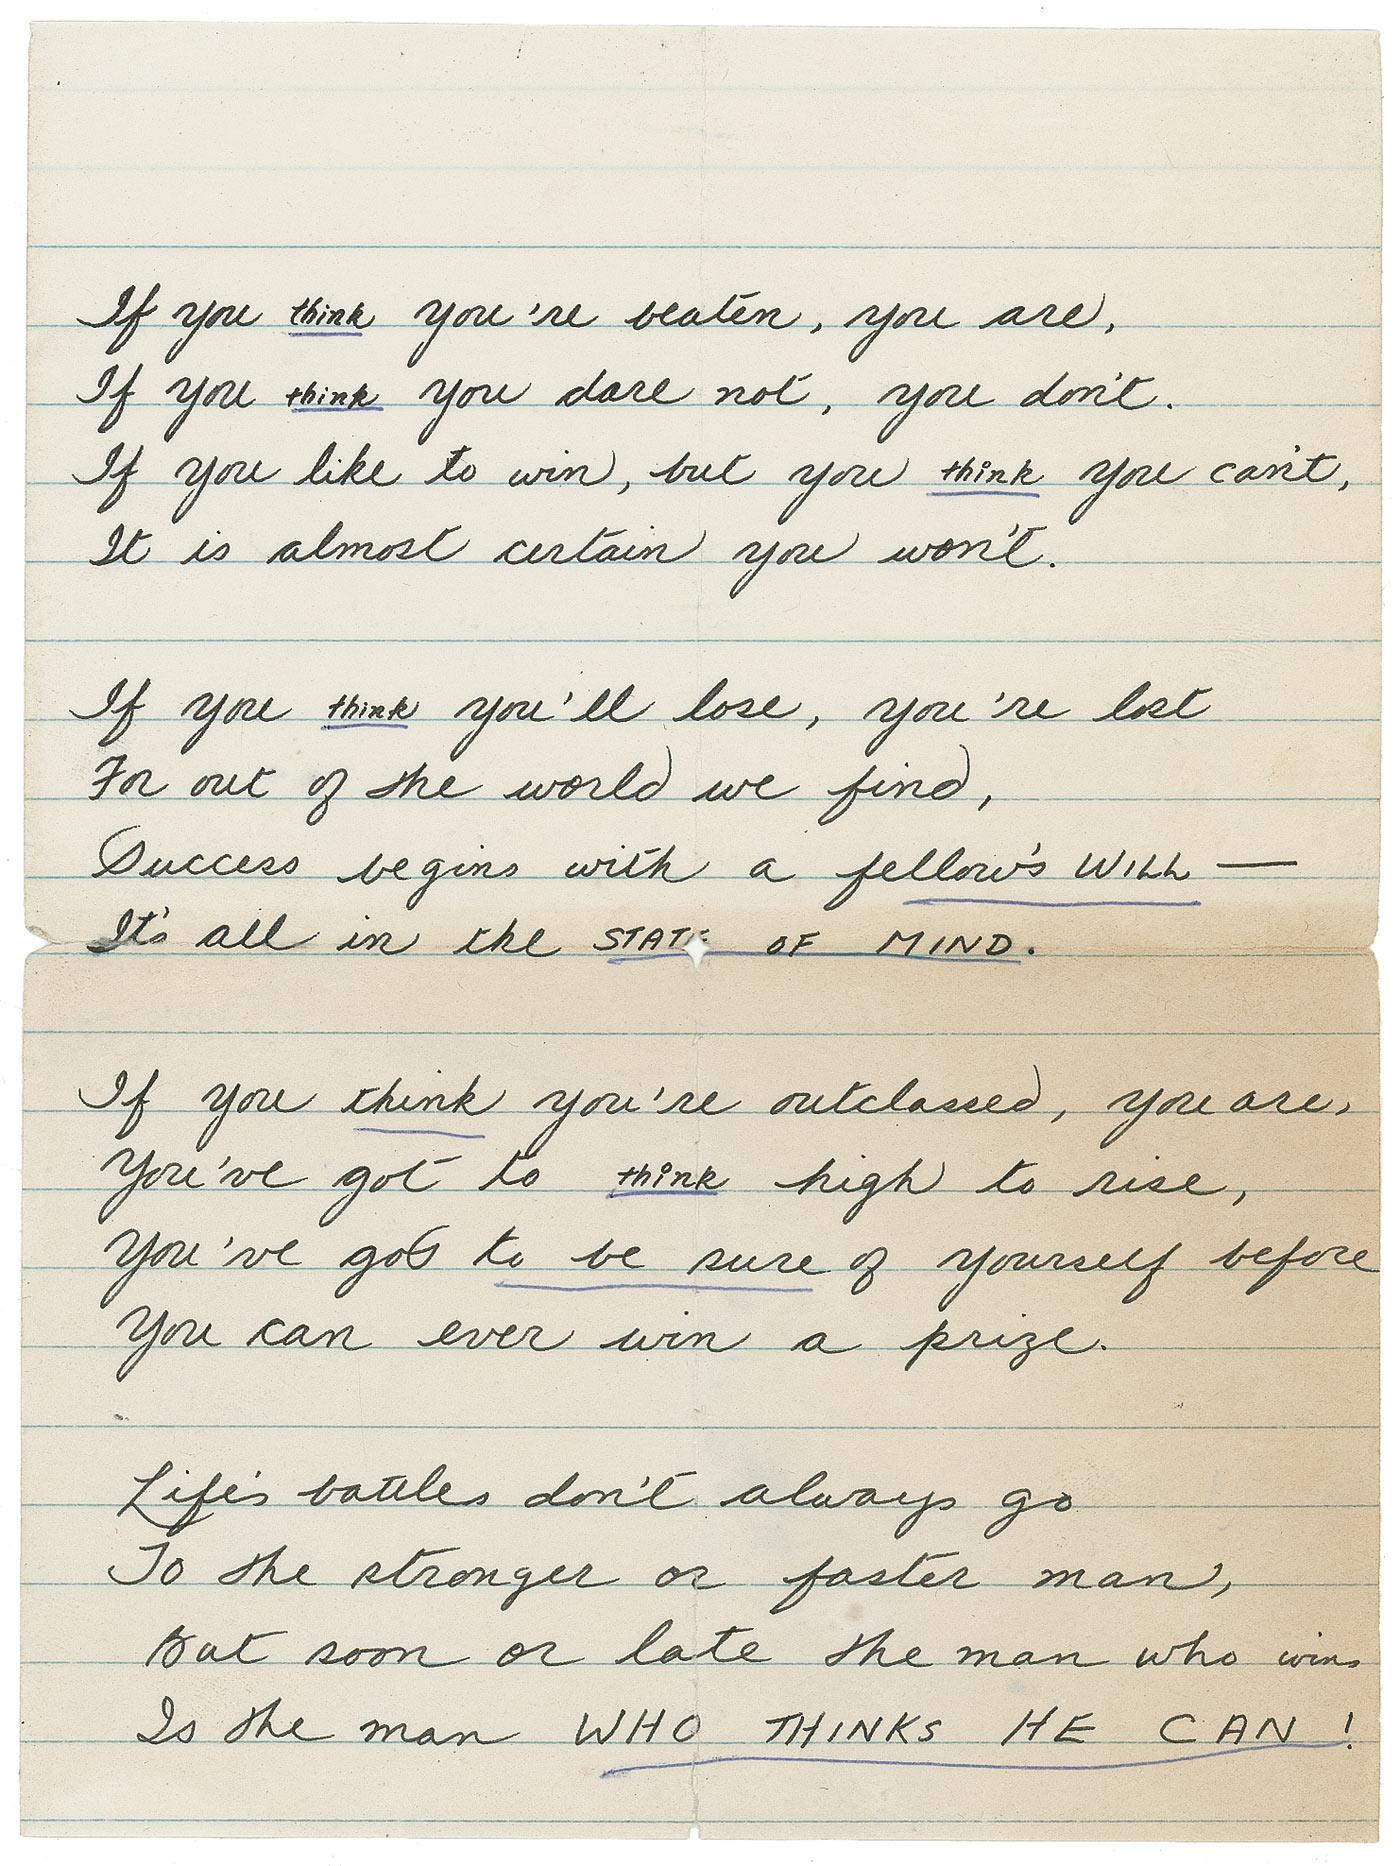 If you think you're beaten, you are,
If you think you dare not, you don't.
If you like to win, but you think you can't,
It is almost certain you won't.
If you think you'll lose, you're lost
For out of the world we find,
Success begins with a fellow's WILL —
It's all in the STATE OF MIND.
If you think you're outclassed, you are,
You've got to think high to rise,
You've got to be sure of yourself before
You can ever win a prize.
Life's battles don't always go
To the stronger or faster man,
But soon or late the man who wins
Is the man WHO THINKS HE CAN!